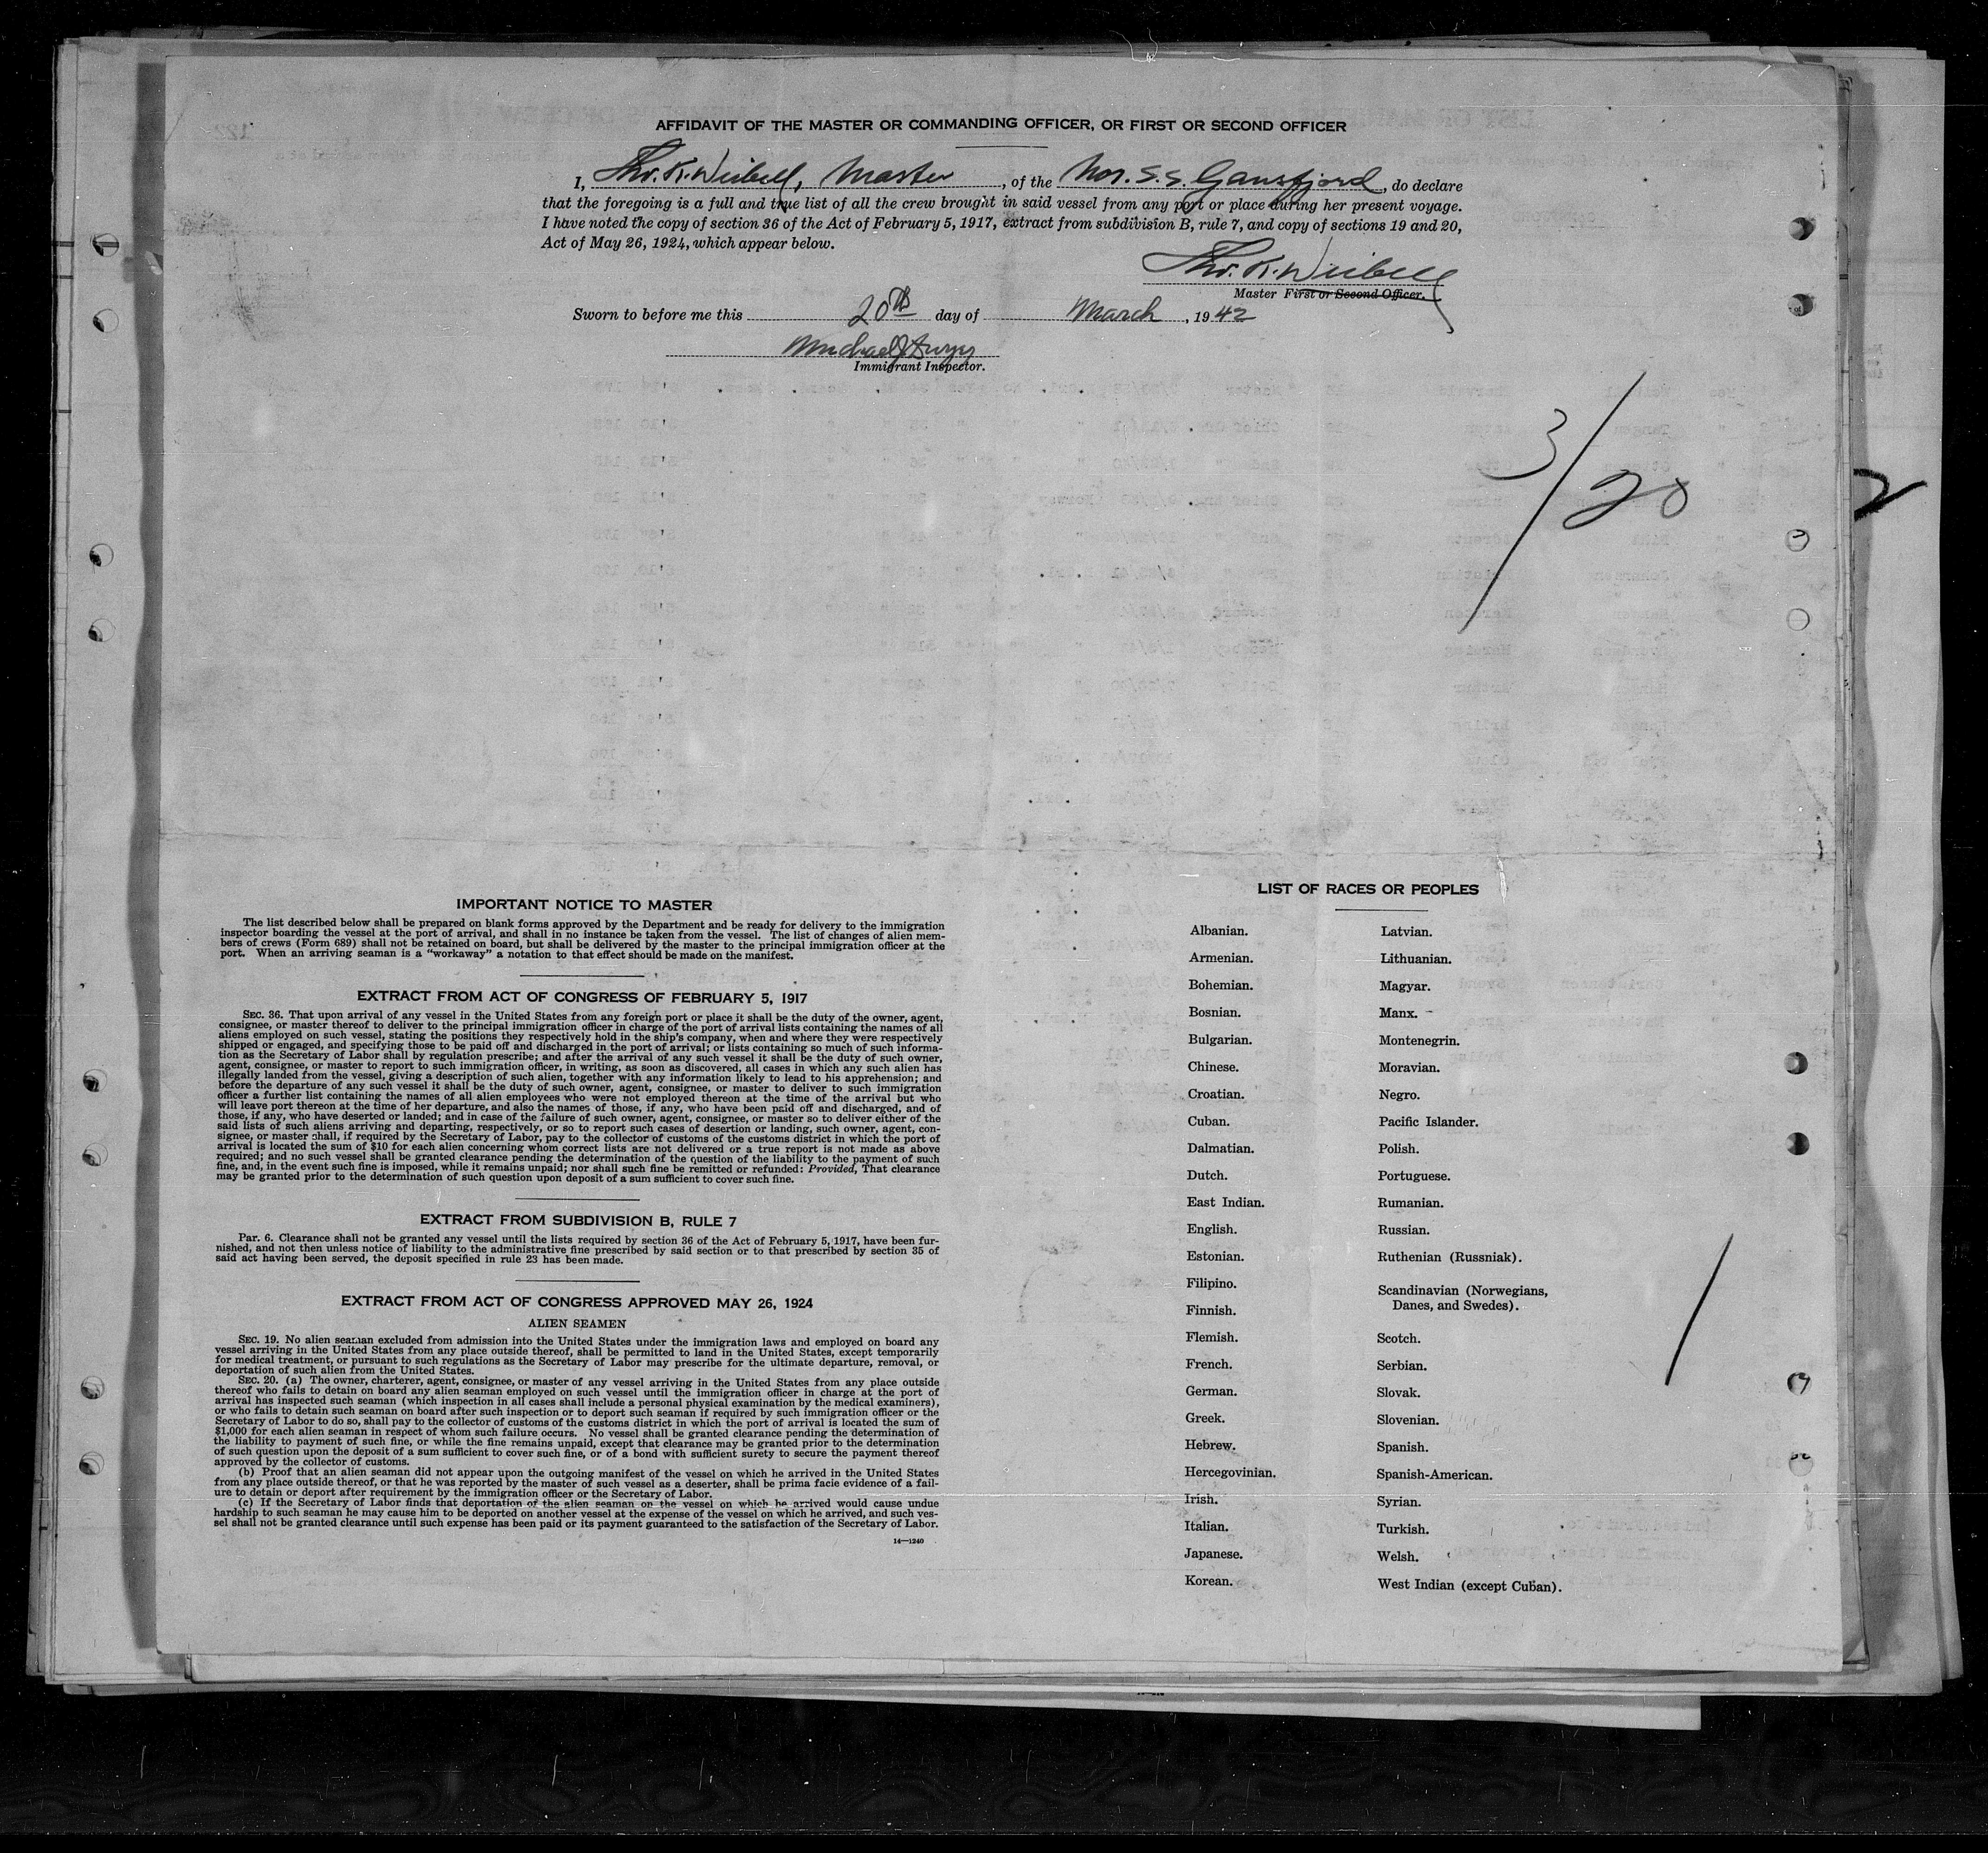 AFFIDAVIT OF THE MASTER OR COMMANDING OFFICER, OR FIRST OR SECOND OFFICER
I, Thv. K. Weibell, Master, of the Nor. S.S. Gansfjord, do declare
that the foregoing is a full and true list of all the crew brought in said vessel from any port or place during her present voyage.
I have noted the copy of section 36 of the Act of February 5, 1917, extract from subdivision B, rule 7, and copy of sections 19 and 20,
Act of May 26, 1924, which appear below.
Thv. K. Weibell
Master First or Second Officer.
Sworn to before me this 20th day of March, 1942
Michael J
Immigrant Inspector.
3/20
2
IMPORTANT NOTICE TO MASTER
The list described below shall be prepared on blank forms approved by the Department and be ready for delivery to the immigration
inspector boarding the vessel at the port of arrival, and shall in no instance be taken from the vessel. The list of changes of alien mem-
bers of crews (Form 689) shall not be retained on board, but shall be delivered by the master to the principal immigration officer at the
port. When an arriving seaman is a "workaway" a notation to that effect should be made on the manifest.
EXTRACT FROM ACT OF CONGRESS OF FEBRUARY 5, 1917
SEC. 36. That upon arrival of any vessel in the United States from any foreign port or place it shall be the duty of the owner, agent,
consignee, or master thereof to deliver to the principal immigration officer in charge of the port of arrival lists containing the names of all
aliens employed on such vessel, stating the positions they respectively hold in the ship's company, when and where they were respectively
shipped or engaged, and specifying those to be paid off and discharged in the port of arrival; or lists containing so much of such informa-
tion as the Secretary of Labor shall by regulation prescribe; and after the arrival of any such vessel it shall be the duty of such owner,
agent, consignee, or master to report to such immigration officer, in writing, as soon as discovered, all cases in which any such alien has
illegally landed from the vessel, giving a description of such alien, together with any information likely to lead to his apprehension; and
before the departure of any such vessel it shall be the duty of such owner, agent, consignee, or master to deliver to such immigration
officer a further list containing the names of all alien employees who were not employed thereon at the time of the arrival but who
will leave port thereon at the time of her departure, and also the names of those, if any, who have been paid off and discharged, and of
those, if any, who have deserted or landed; and in case of the failure of such owner, agent, consignee, or master so to deliver either of the
said lists of such aliens arriving and departing, respectively, or so to report such cases of desertion or landing, such owner, agent, con-
signee, or master shall, if required by the Secretary of Labor, pay to the collector of customs of the customs district in which the port of
arrival is located the sum of $10 for each alien concerning whom correct lists are not delivered or a true report is not made as above
required; and no such vessel shall be granted clearance pending the determination of the question of the liability to the payment of such
fine, and, in the event such fine is imposed, while it remains unpaid; nor shall such fine be remitted or refunded: Provided, That clearance
may be granted prior to the determination of such question upon deposit of a sum sufficient to cover such fine.
EXTRACT FROM SUBDIVISION B, RULE 7
Par. 6. Clearance shall not be granted any vessel until the lists required by section 36 of the Act of February 5, 1917, have been fur-
nished, and not then unless notice of liability to the administrative fine prescribed by said section or to that prescribed by section 35 of
said act having been served, the deposit specified in rule 23 has been made.
EXTRACT FROM ACT OF CONGRESS APPROVED MAY 26, 1924
ALIEN SEAMEN
SEC. 19. No alien seaman excluded from admission into the United States under the immigration laws and employed on board any
vessel arriving in the United States from any place outside thereof, shall be permitted to land in the United States, except temporarily
for medical treatment, or pursuant to such regulations as the Secretary of Labor may prescribe for the ultimate departure, removal, or
deportation of such alien from the United States.
SEC. 20. (a) The owner, charterer, agent, consignee, or master of any vessel arriving in the United States from any place outside
thereof who fails to detain on board any alien seaman employed on such vessel until the immigration officer in charge at the port of
arrival has inspected such seaman (which inspection in all cases shall include a personal physical examination by the medical examiners),
or who fails to detain such seaman on board after such inspection or to deport such seaman if required by such immigration officer or the
Secretary of Labor to do so, shall pay to the collector of customs of the customs district in which the port of arrival is located the sum of
$1,000 for each alien seaman in respect of whom such failure occurs. No vessel shall be granted clearance pending the determination of
the liability to payment of such fine, or while the fine remains unpaid, except that clearance may be granted prior to the determination
of such question upon the deposit of a sum sufficient to cover such fine, or of a bond with sufficient surety to secure the payment thereof
approved by the collector of customs.
(b) Proof that an alien seaman did not appear upon the outgoing manifest of the vessel on which he arrived in the United States
from any place outside thereof, or that he was reported by the master of such vessel as a deserter, shall be prima facie evidence of a fail-
ure to detain or deport after requirement by the immigration officer or the Secretary of Labor.
(c) If the Secretary of Labor finds that deportation of the alien seaman on the vessel on which he arrived would cause undue
hardship to such seaman he may cause him to be deported on another vessel at the expense of the vessel on which he arrived, and such ves-
sel shall not be granted clearance until such expense has been paid or its payment guaranteed to the satisfaction of the Secretary of Labor.
14—1240
LIST OF RACES OR PEOPLES
Albanian.
Armenian.
Bohemian.
Bosnian.
Bulgarian.
Chinese.
Croatian.
Cuban.
Dalmatian.
Dutch.
East Indian.
English.
Estonian.
Filipino.
Finnish.
Flemish.
French.
German.
Greek.
Hebrew.
Hercegovinian.
Irish.
Italian.
Japanese.
Korean.
Latvian.
Lithuanian.
Magyar.
Manx.
Montenegrin.
Moravian.
Negro.
Pacific Islander.
Polish.
Portuguese.
Rumanian.
Russian.
Ruthenian (Russniak).
Scandinavian (Norwegians,
Danes, and Swedes).
Scotch.
Serbian.
Slovak.
Slovenian.
Spanish.
Spanish-American.
Syrian.
Turkish.
Welsh.
West Indian (except Cuban).